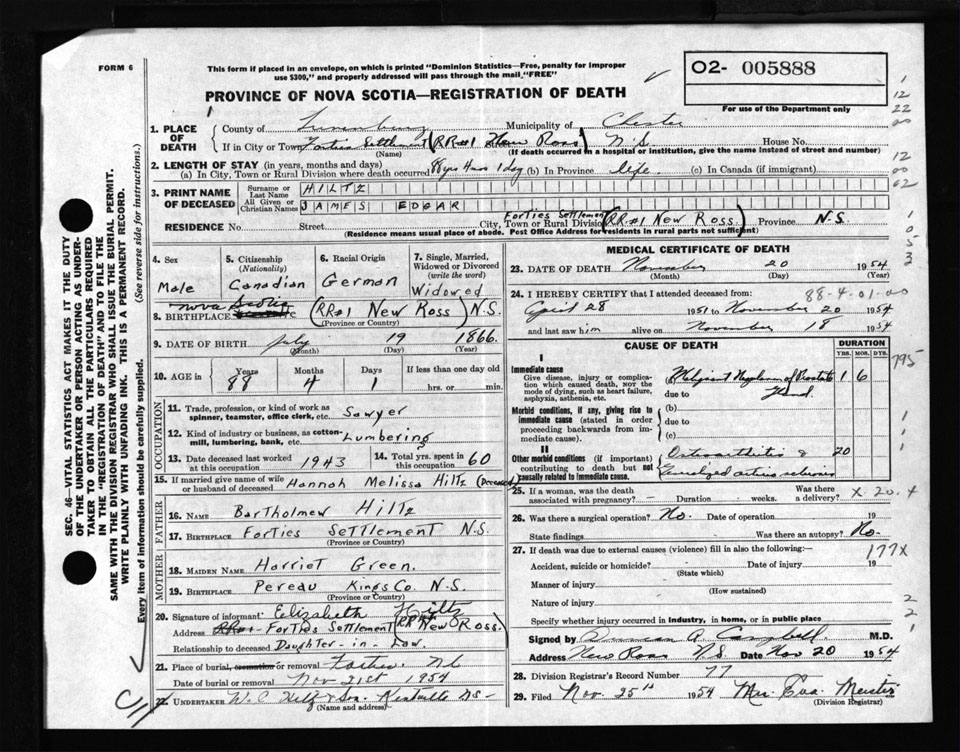 FORM 6
This form if placed in an envelope, on which is printed "Dominion Statistics—Free, penalty for improper
use $300," and properly addressed will pass through the mail "FREE"
O2- 005888
For use of the Department only
PROVINCE OF NOVA SCOTIA—REGISTRATION OF DEATH
1. PLACE OF DEATH
County of Lunenburg Municipality of Chester
If in City or Town Forties Settlement (RR#1 New Ross) N.S. House No.
(Name) (If death occurred in a hospital or institution, give the name instead of street and number)
2. LENGTH OF STAY (in years, months and days)
(a) In City, Town or Rural Division where death occurred 88yrs 4mos 1day (b) In Province life. (c) In Canada (if immigrant)
3. PRINT NAME OF DECEASED
Surname or Last Name HILTZ
All Given or Christian Names JAMES EDGAR
RESIDENCE No. Street City, Town or Rural Division Forties Settlement (RR#1 New Ross.) Province N.S.
(Residence means usual place of abode. Post Office Address for residents in rural parts not sufficient)
4. Sex
Male
5. Citizenship (Nationality)
Canadian
6. Racial Origin
German
7. Single, Married, Widowed or Divorced (write the word)
Widowed
Nova Scotia
8. BIRTHPLACE (RR#1 New Ross) N.S.
(Province or Country)
9. DATE OF BIRTH July 19 1866.
(Month) (Day) (Year)
10. AGE in Years Months Days If less than one day old
88 4 1 hrs. or min.
OCCUPATION
11. Trade, profession, or kind of work as spinner, teamster, office clerk, etc. Sawyer
12. Kind of industry or business, as cotton-mill, lumbering, bank, etc. Lumbering
13. Date deceased last worked at this occupation 1943 14. Total yrs. spent in this occupation 60
15. If married give name of wife or husband of deceased Hannah Melissa Hiltz (Deceased)
FATHER
16. NAME Bartholmew Hiltz
17. BIRTHPLACE Forties Settlement N.S.
(Province or Country)
MOTHER
18. MAIDEN NAME Harriet Green.
19. BIRTHPLACE Pereau Kings Co. N.S.
(Province or Country)
20. Signature of informant Elizabeth Hiltz
Address RR#1 Forties Settlement (RR#1 New Ross.)
Relationship to deceased Daughter-in-Law.
21. Place of burial, cremation or removal Forties N.S.
Date of burial or removal Nov 21st 1954
22. UNDERTAKER W.C. Hiltz & Son. Kentville NS-
(Name and address)
MEDICAL CERTIFICATE OF DEATH
23. DATE OF DEATH November 20 1954
(Month) (Day) (Year)
24. I HEREBY CERTIFY that I attended deceased from: 88-4-01-00
April 28 1951 to November 20 1954
and last saw him alive on November 18 1954
CAUSE OF DEATH
DURATION
YRS. MOS. DYS.
I
Immediate cause
Give disease, injury or complication which caused death, NOT the mode of dying, such as heart failure, asphyxia, asthenia, etc.
(a) Malignant Neoplasm of Prostate 1 6
due to Gland.
Morbid conditions, if any, giving rise to immediate cause (stated in order proceeding backwards from immediate cause).
(b)
due to
(c)
II
Other morbid conditions (if important) contributing to death but not causally related to immediate cause.
Osteoarthritis & 20
Generalized arteriosclerosis
25. If a woman, was the death associated with pregnancy? - Duration weeks. Was there a delivery? X-20.4
26. Was there a surgical operation? No. Date of operation 19
State findings Was there an autopsy? No.
27. If death was due to external causes (violence) fill in also the following:— 177X
Accident, suicide or homicide? Date of injury 19
(State which)
Manner of injury
(How sustained)
Nature of injury
Specify whether injury occurred in industry, in home, or in public place
Signed by Duncan R. Campbell M.D.
Address New Ross N.S. Date Nov 20 1954
28. Division Registrar's Record Number 77
29. Filed Nov. 25th 1954 Mrs. Eva Meister
(Division Registrar)
SEC. 46- VITAL STATISTICS ACT MAKES IT THE DUTY
OF THE UNDERTAKER OR PERSON ACTING AS UNDER-
TAKER TO OBTAIN ALL THE PARTICULARS REQUIRED
IN THE "REGISTRATION OF DEATH" AND TO FILE THE
SAME WITH THE DIVISION REGISTRAR WHO SHALL ISSUE THE BURIAL PERMIT.
WRITE PLAINLY WITH UNFADING INK. THIS IS A PERMANENT RECORD.
Every item of information should be carefully supplied. (See reverse side for instructions.)
12
22
00
12
00
02
1
0
5
3
795
2
2